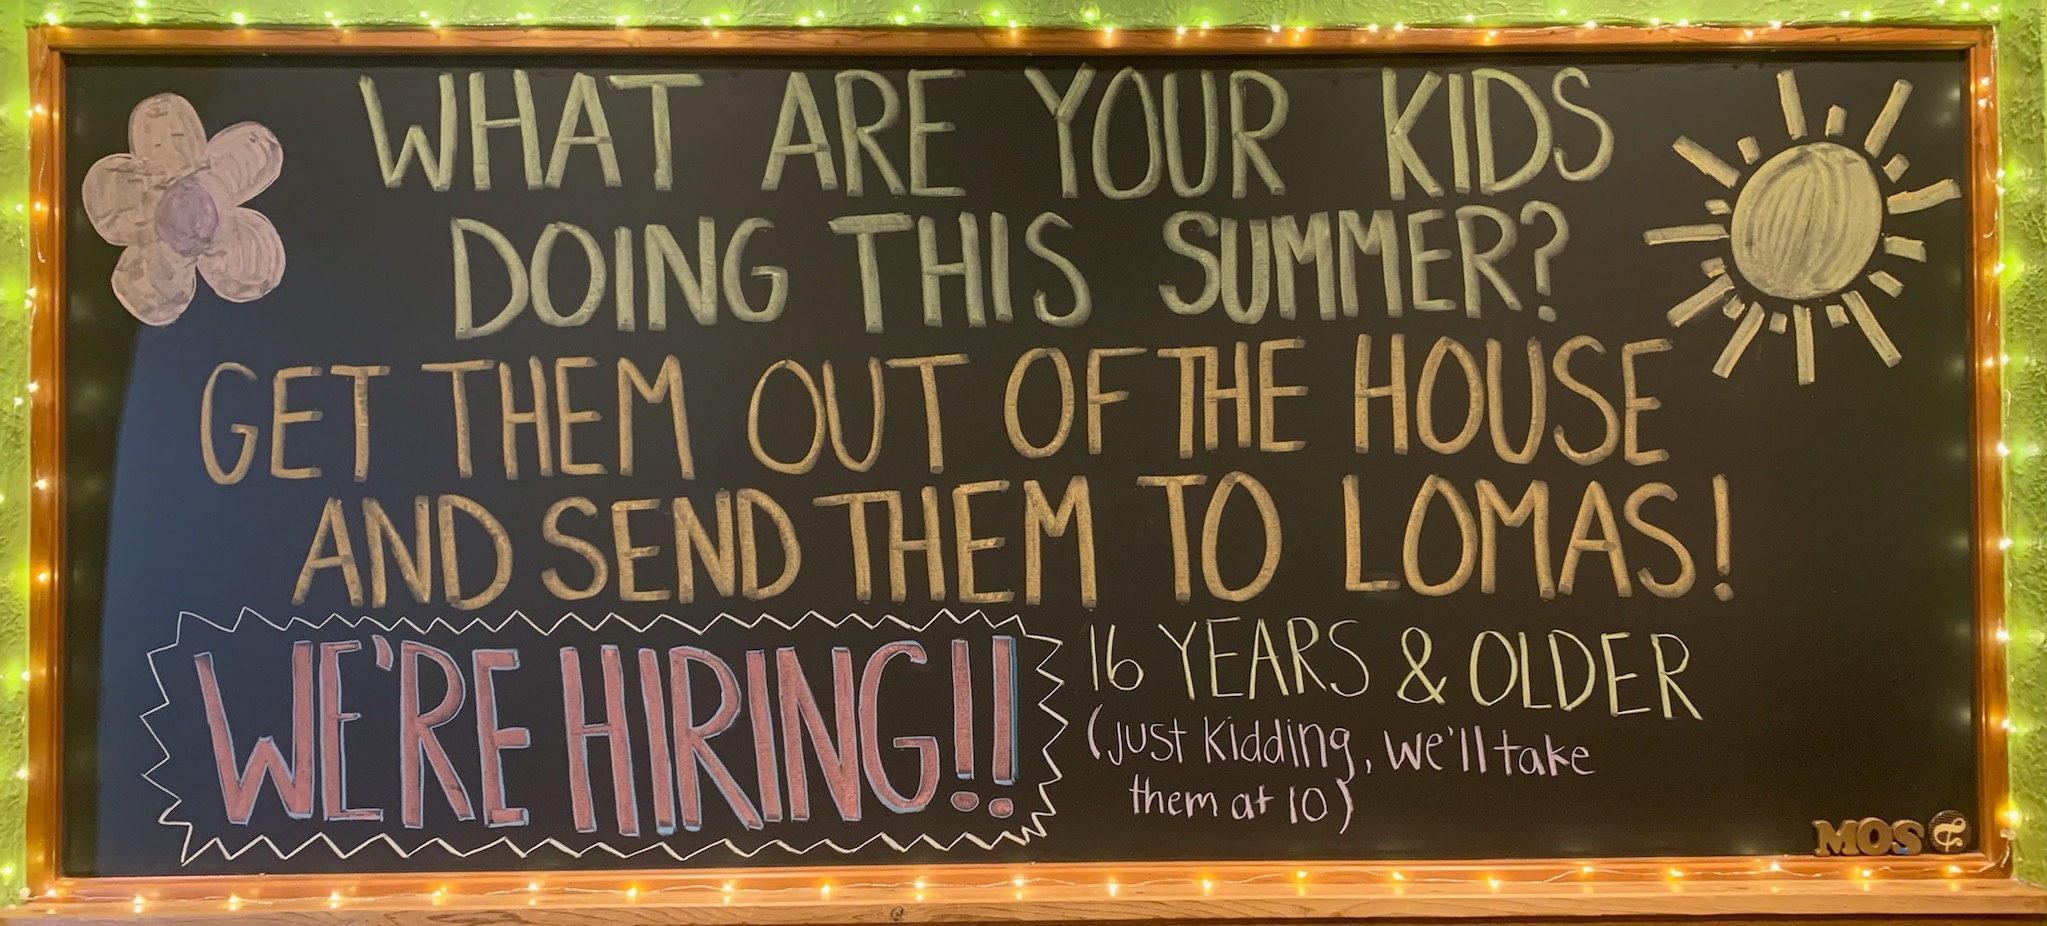 WHAT ARE YOUR KIDS
DOING THIS SUMMER?
GET THEM OUT OF THE HOUSE
AND SEND THEM TO LOMAS!
WE'RE HIRING!!
16 YEARS & OLDER
(just kidding, we'll take
them at 10)
MOS